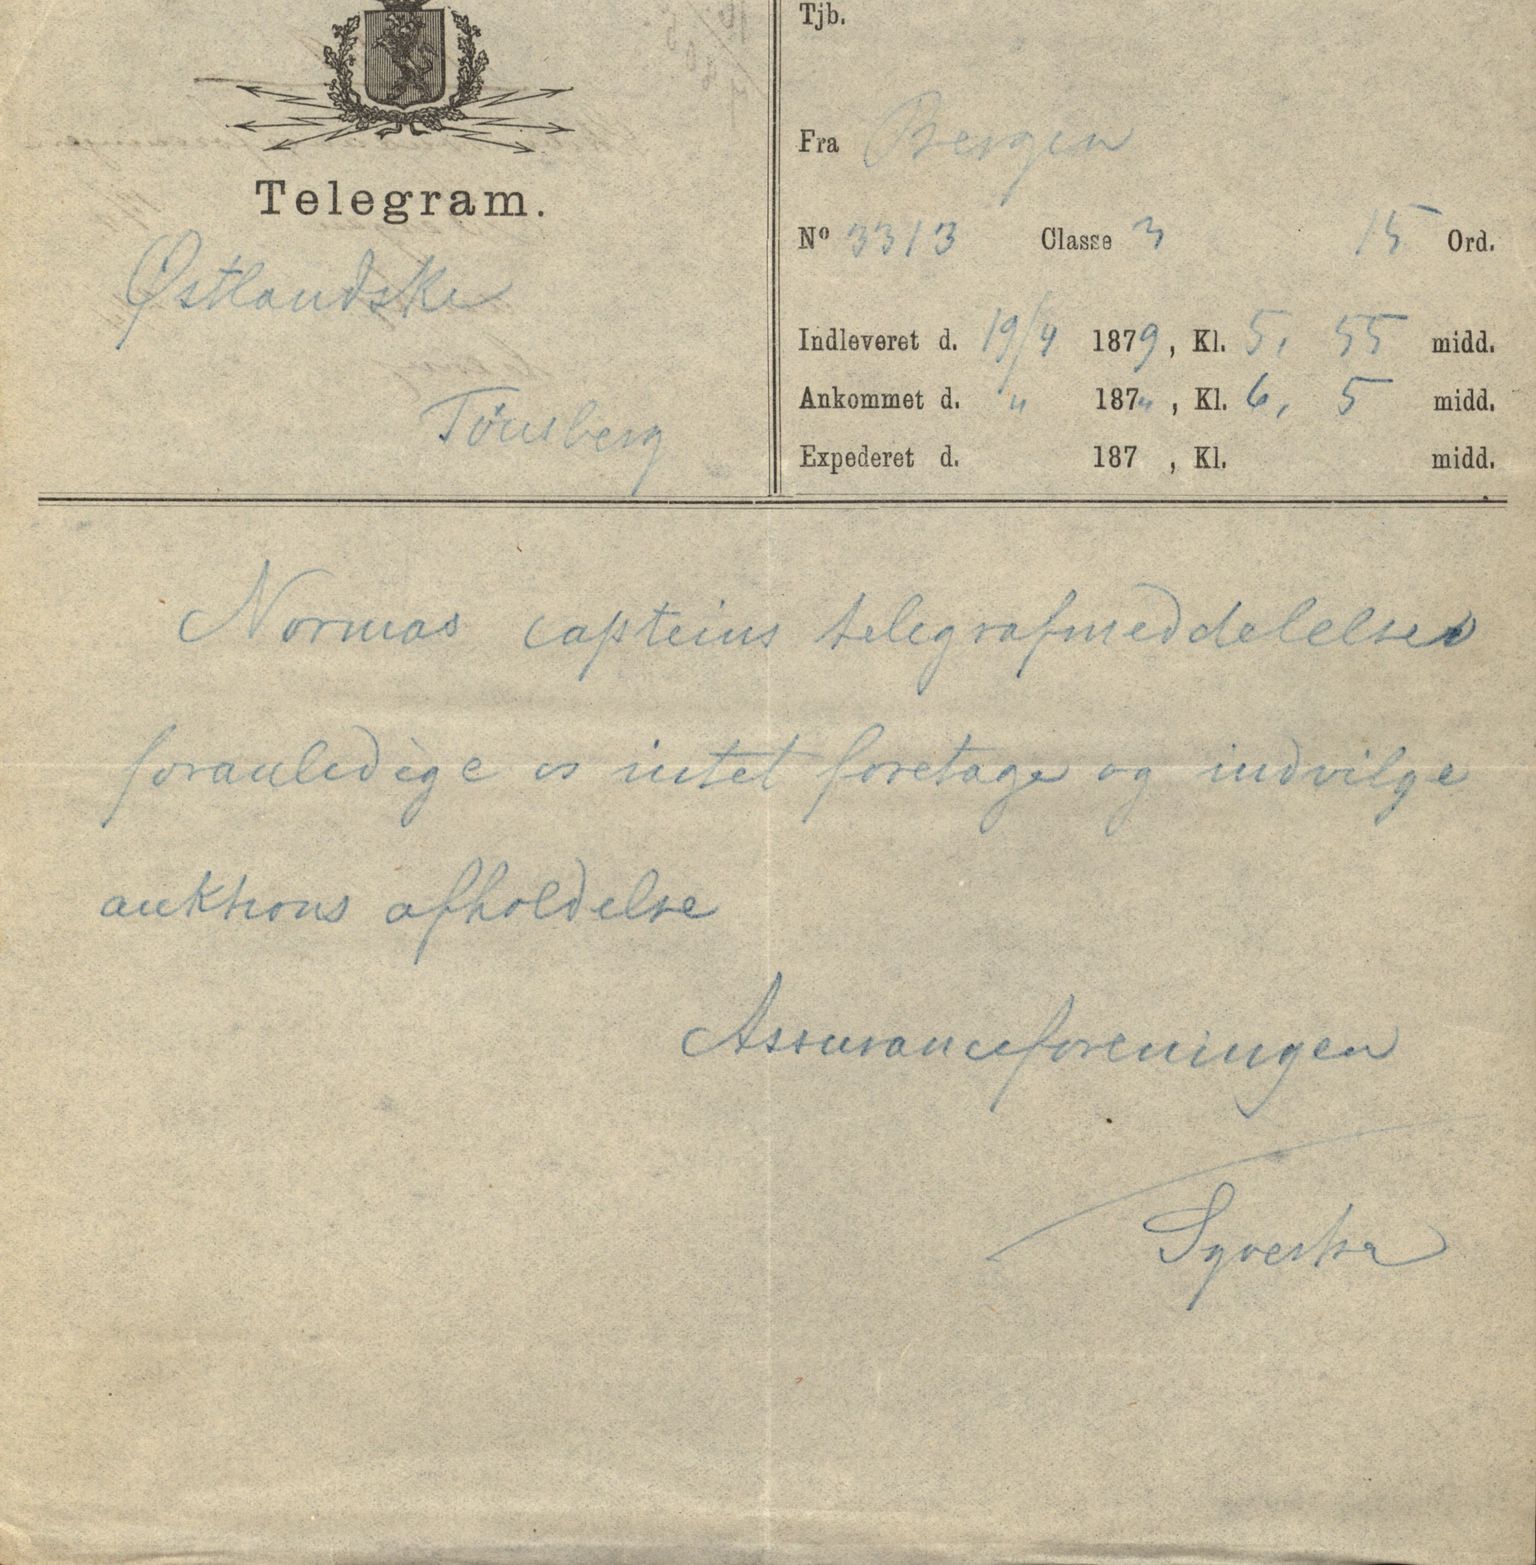 Telegram.
Østlandske
Tønsberg
Tjb.
Fra Bergen
Nº 3313 Classe 3 15 Ord.
Indleveret d. 19/4 1879, Kl. 5, 55 midd.
Ankommet d. " 187", Kl. 6, 5 midd.
Expederet d. 187 , Kl. midd.
Normas capteins telegrafmeddelelser
foranledige os intet foretage og indvilge
auktions afholdelse
Assuranceforeningen